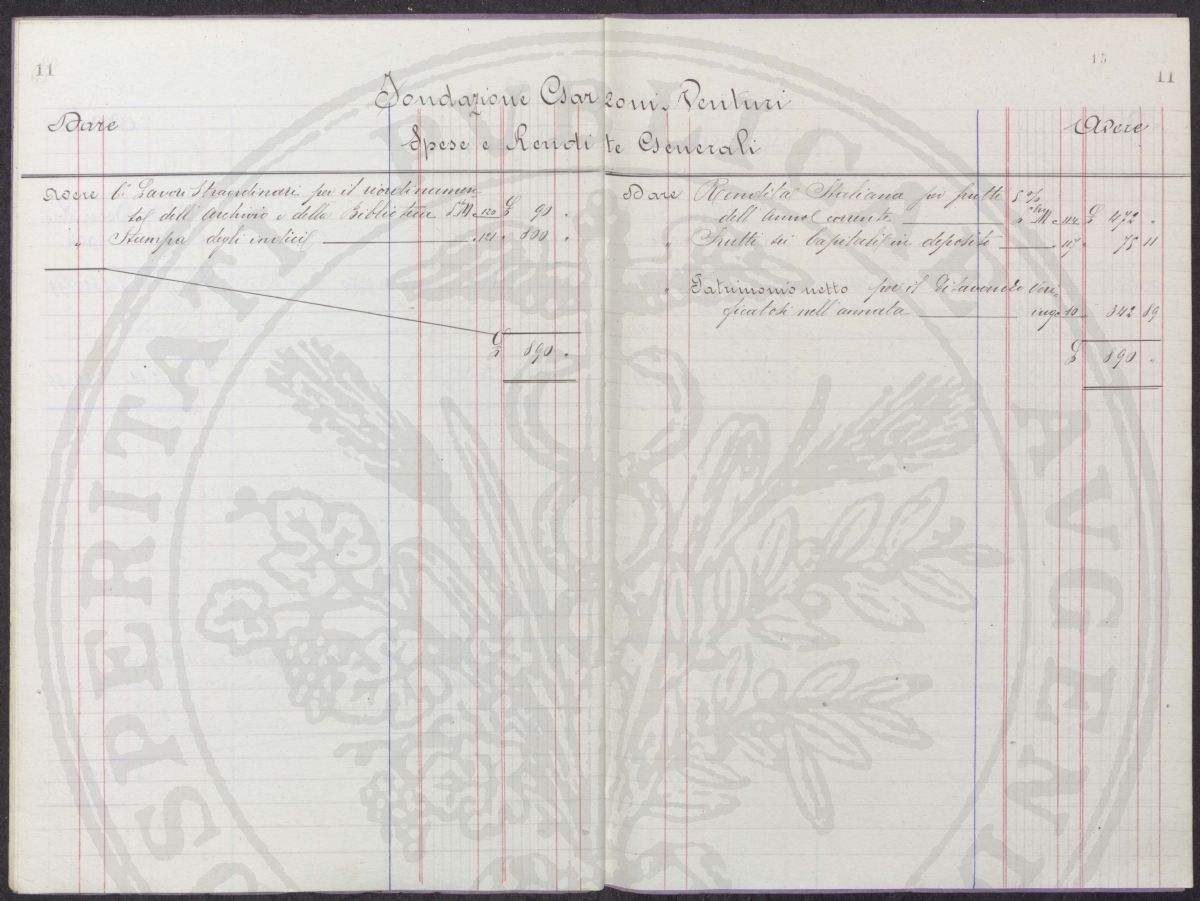 11
15
11
Fondazione Garzoni Venturi
Dare
Avere
Spese e Rendite Generali
Avere 6 Lavori Straordinari per il riordinamen
to dell'archivio e della Biblioteca 120 £ 90 "
" Stampa degli indici " 121 " 800 "
£ 890 "
Dare Rendita Italiana per frutti 5%
dell'anno corrente 114 £ 472 "
" Frutti sui Capitali in deposito " 117 " 75 11
" Patrimonio netto per il disavanzo veri-
ficatosi nell'annata 10 " 342 89
£ 890 "
SPERITATI PVBLICA AVGEND